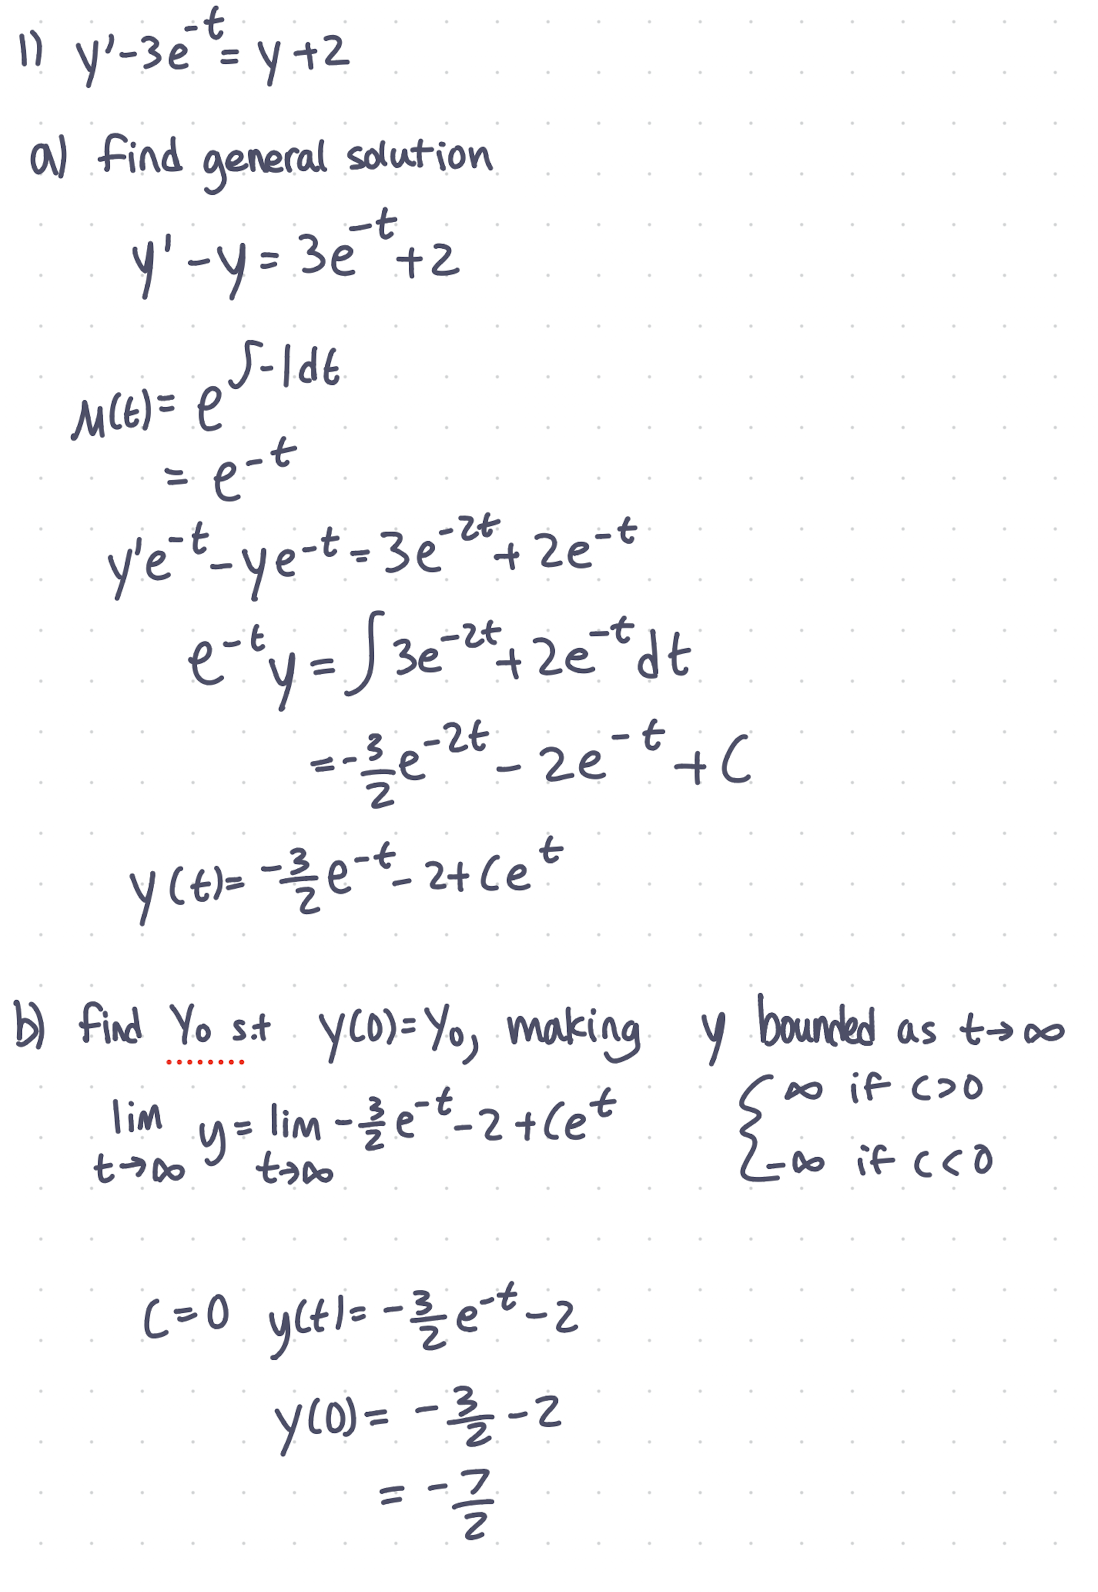 1) y'-3e^-t = y+2
a) find general solution
y'-y = 3e^-t+2
μ(t)= e^∫-1dt
= e^-t
y'e^-t-ye^-t=3e^-2t+2e^-t
e^-ty=∫3e^-2t+2e^-tdt
=-3/2e^-2t-2e^-t+C
y(t)= -3/2e^-t-2+Ce^t
b) find Y₀ s.t y(0)=Y₀, making y bounded as t→∞
lim t→∞ y= lim t→∞ -3/2e^-t-2+Ce^t { ∞ if C>0
-∞ if C<0
C=0 y(t)= -3/2e^-t-2
y(0)= -3/2-2
= -7/2